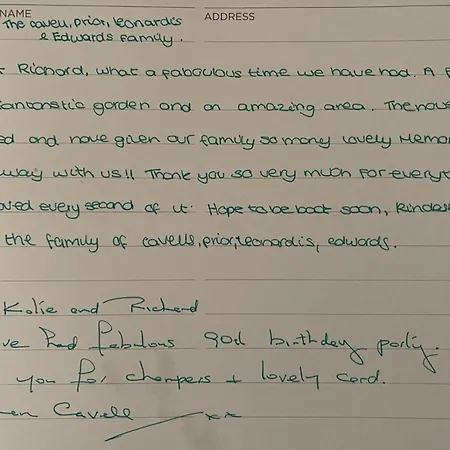 NAME ADDRESS
The cavell, prior, leonardis
& Edwards family.
Richard, what a faboulous time we have had. A
fantanstic garden and an amazing area. The hous
ed and have given our family so many lovely Memor
way with us!! Thank you so very much for everyt
oved every second of it. Hope to be back soon, Kindes
the family of cavells, prior, leonardis, edwards.
Katie and Richard
ve had fabulous 90th birthday party.
you for champers + lovely card.
en Cavell xx